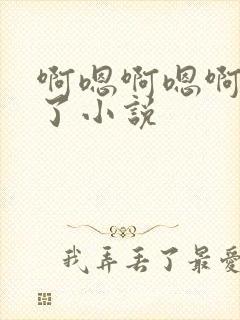 啊嗯啊嗯啊
了小说
我弄丢了最爱